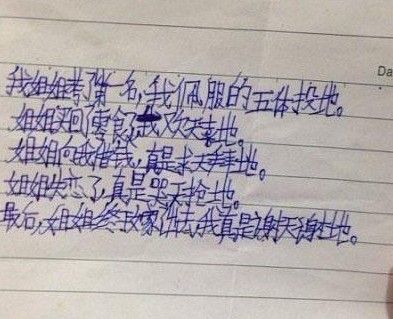 Da
我姐姐考了第一名,我佩服的五体投地。
姐姐买回零食了我欢天喜地。
姐姐向我借钱,真是求天拜地。
姐姐失恋了,真是哭天抢地。
最后,姐姐终于嫁出去,我真是谢天谢地。